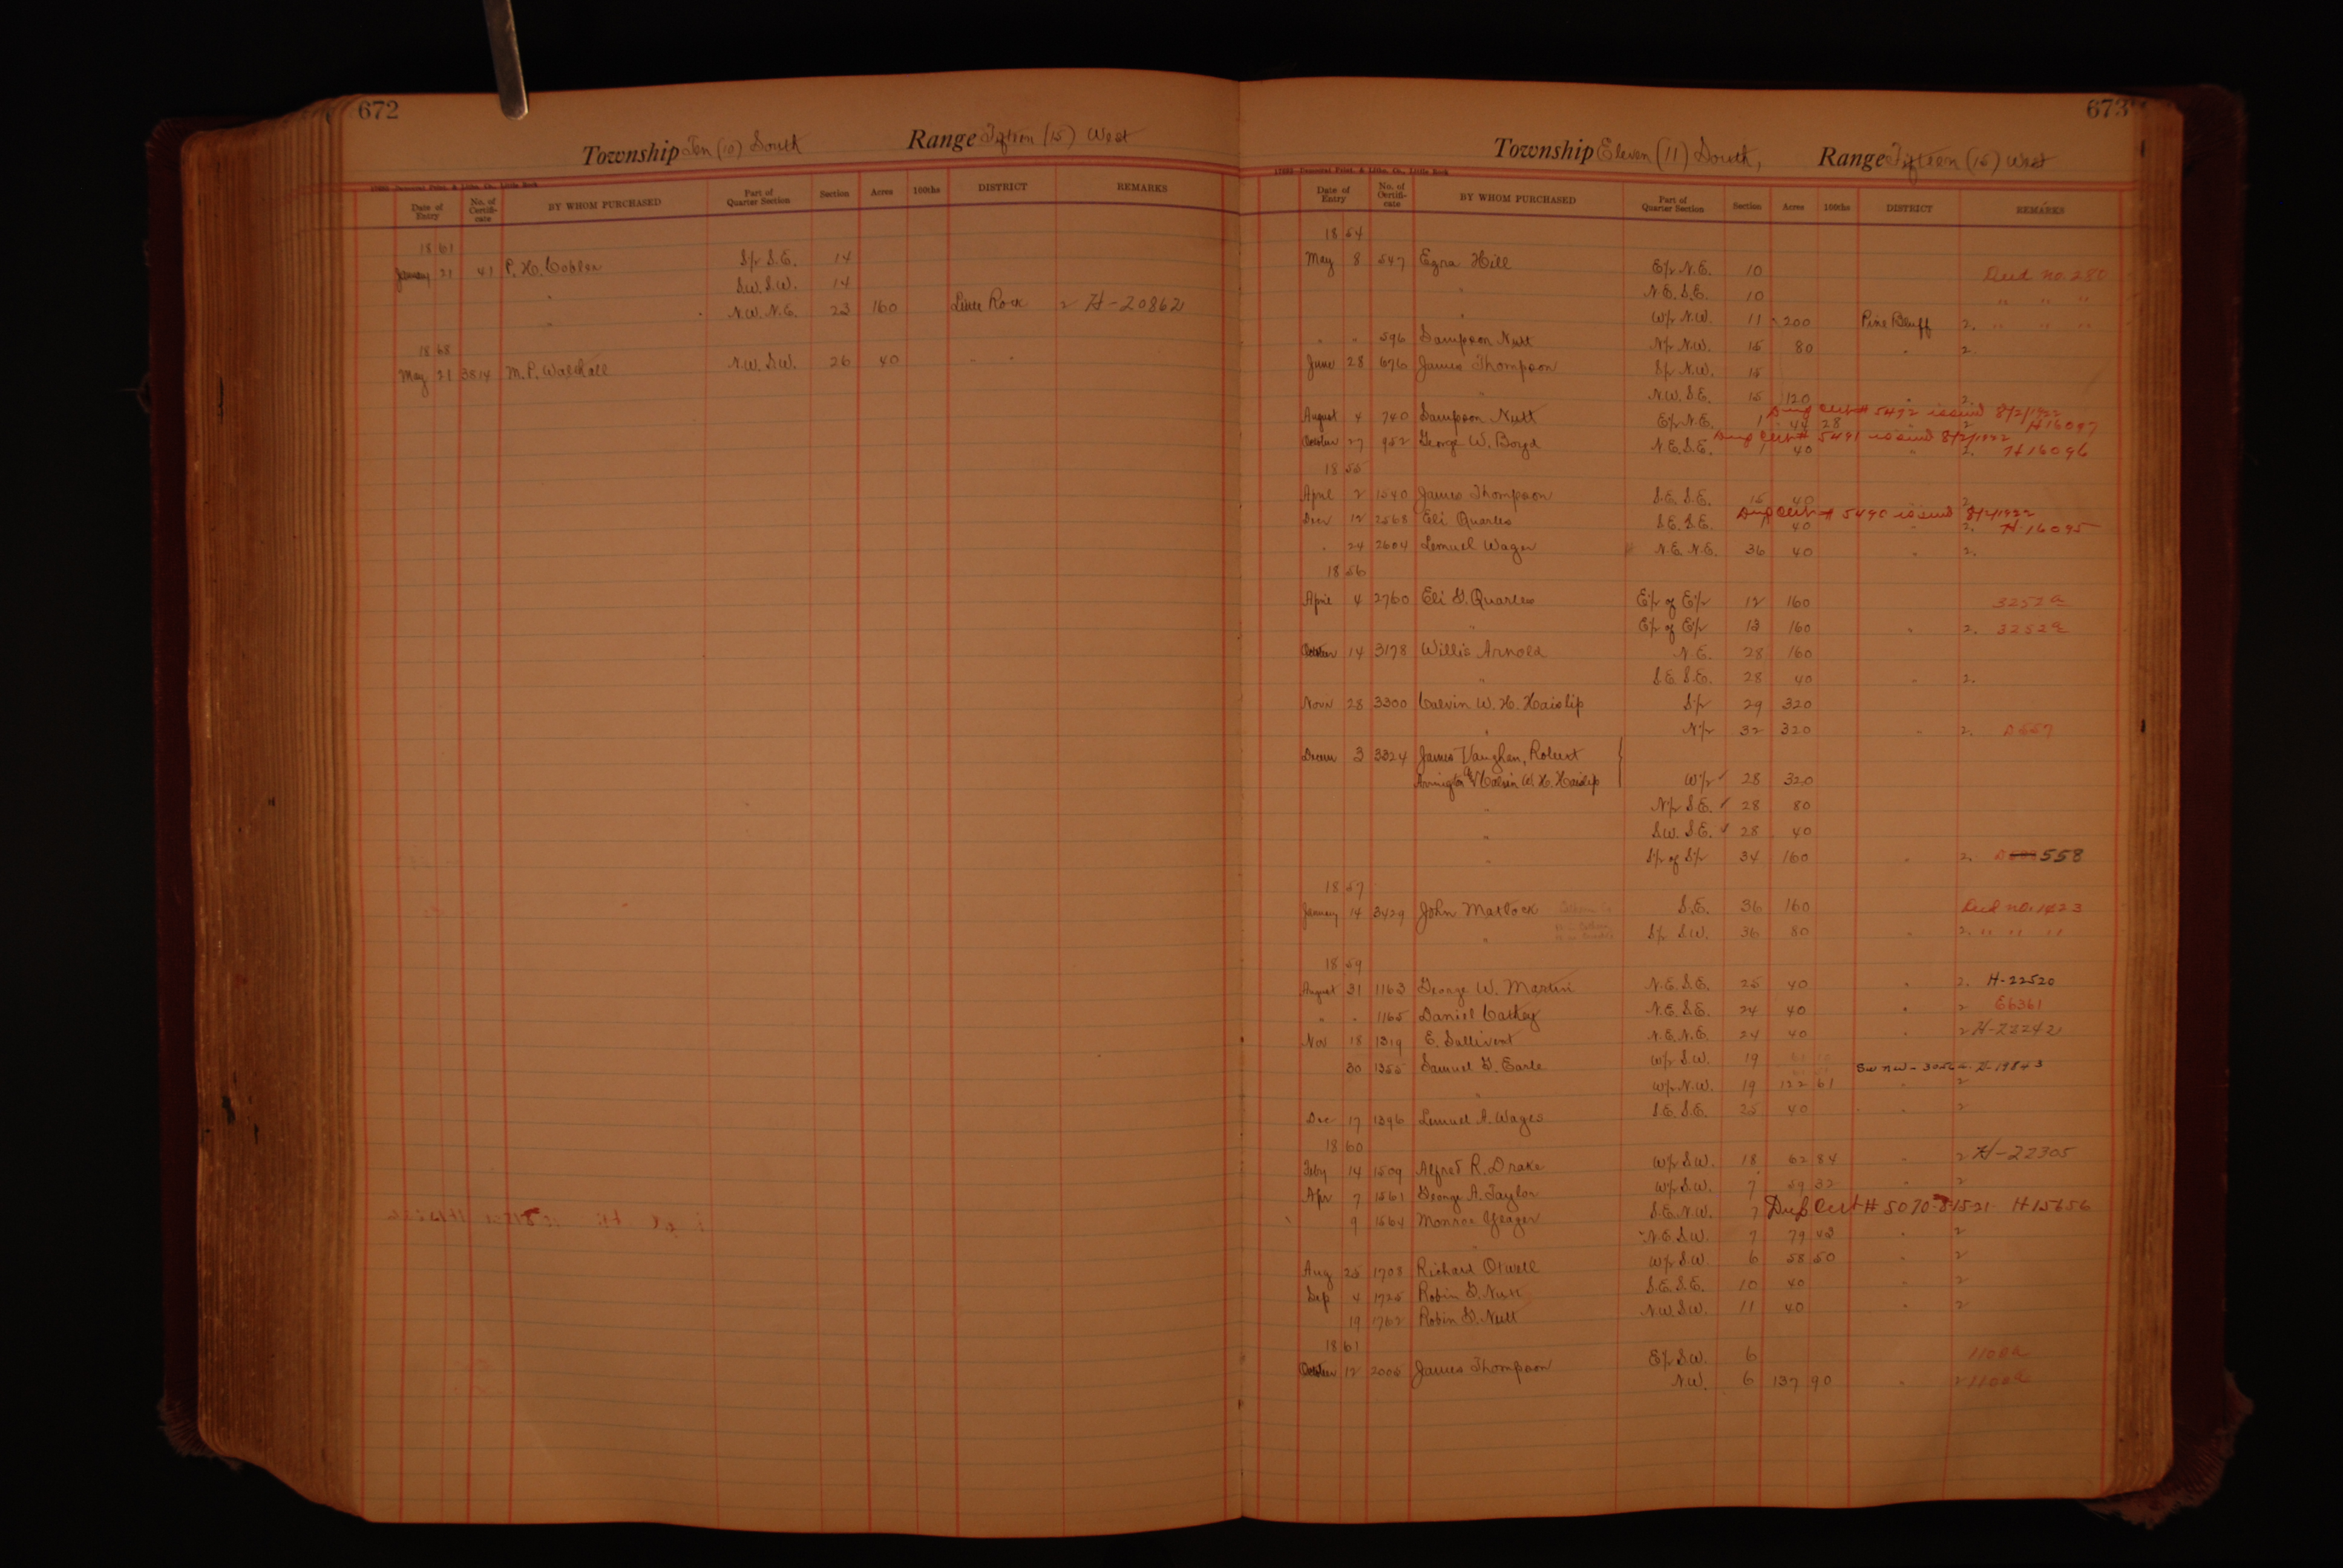 672
Township Ten (10) South Range Fifteen (15) West
Date of Entry No. of Certifi-cate BY WHOM PURCHASED Part of Quarter Section Section Acres 100ths DISTRICT REMARKS
1861
January 21 41 P. H. S/2 S.E. 14
" S.W. S.W. 14
" N.W. N.E. 23 160 Little Rock 2 H-20862
1868
May 21 3814 M. P. Walthall N.W. S.W. 26 40 " "
673
Township Eleven (11) South, Range Fifteen (15) West
Date of Entry No. of Certifi-cate BY WHOM PURCHASED Part of Quarter Section Section Acres 100ths DISTRICT REMARKS
1854
May 8 547 Ezra Hill E/2 N.E. 10 Deed no. 280
" N.E. S.E. 10 " " "
" W/2 N.W. 11 200 Pine Bluff 2. " " "
" " 596 Sampson Nutt N/2 N.W. 15 80 " 2
June 28 676 James Thompson S/2 N.W. 15
" N.W. S.E. 15 120 " 2.
Dup Cert # 5492 issued 8/2/1922
August 4 740 Sampson Nutt E/2 N.E. 1 44 28 " 2 H16097
Dup Cert # 5491 issued 8/2/1922
October 27 952 George W. Boyd N.E. S.E. 1 40 " 2. H16096
1855
April 2 1540 James Thompson S.E. S.E. 15 40 2
Dup Cert # 5490 issued 8/2/1922
Decr 12 2568 Eli Quarles S.E. S.E. 1 40 " 2. H16095
" 24 2604 Lemuel Wager N.E. N.E. 36 40 " 2.
1856
April 4 2760 Eli G. Quarles E/2 of E/2 12 160 3252a
" E/2 of E/2 13 160 " 2. 3252a
October 14 3178 Willis Arnold N.E. 28 160
" S.E. S.E. 28 40 " 2.
Novr 28 3300 Calvin W. H. Haislip S/2 29 320
" N/2 32 320 " 2. D557
Decem 3 3324 James Vaughan, Robert
Arrington & Calvin W. H. Haislip W/2 28 320
" N/2 S.E. 28 80
" S.W. S.E. 28 40
" S/2 of S/2 34 160 " 2. 558
1857
January 14 3429 John Matlock S.E. 36 160 Deed no. 1423
" S/2 S.W. 36 80 " 2. " " "
1859
August 31 1163 George W. Martin N.E. S.E. 25 40 " 2. H-22520
" " 1165 Daniel Cathey N.E. S.E. 24 40 " 2 E6361
Nov 18 1319 E. Sullivent N.E. N.E. 24 40 " 2 H-23242
30 1355 Samuel G. Earle W/2 S.W. 19 SW NW - H-19843
" W/2 N.W. 19 122 61 " 2
Dec 17 1396 Lemuel A. Wages S.E. S.E. 25 40 " 2
1860
Feby 14 1509 Alfred R. Drake W/2 S.W. 18 62 84 " 2 H-22305
Apr 7 1561 George A. Taylor W/2 S.W. 7 59 32 " 2
9 1564 Monroe Yeager S.E. N.W. 7 Dup Cert # 5070 H15656
" N.E. S.W. 7 79 43 " 2
Aug 25 1708 Richard Otwell W/2 S.W. 6 58 50 " 2
Sep 4 1725 Robin G. Nutt S.E. S.E. 10 40 " 2
19 1762 Robin G. Nutt N.W. S.W. 11 40 " 2
1861
October 12 2006 James Thompson E/2 S.W. 6 1100a
N.W. 6 137 90 " 2 1100a